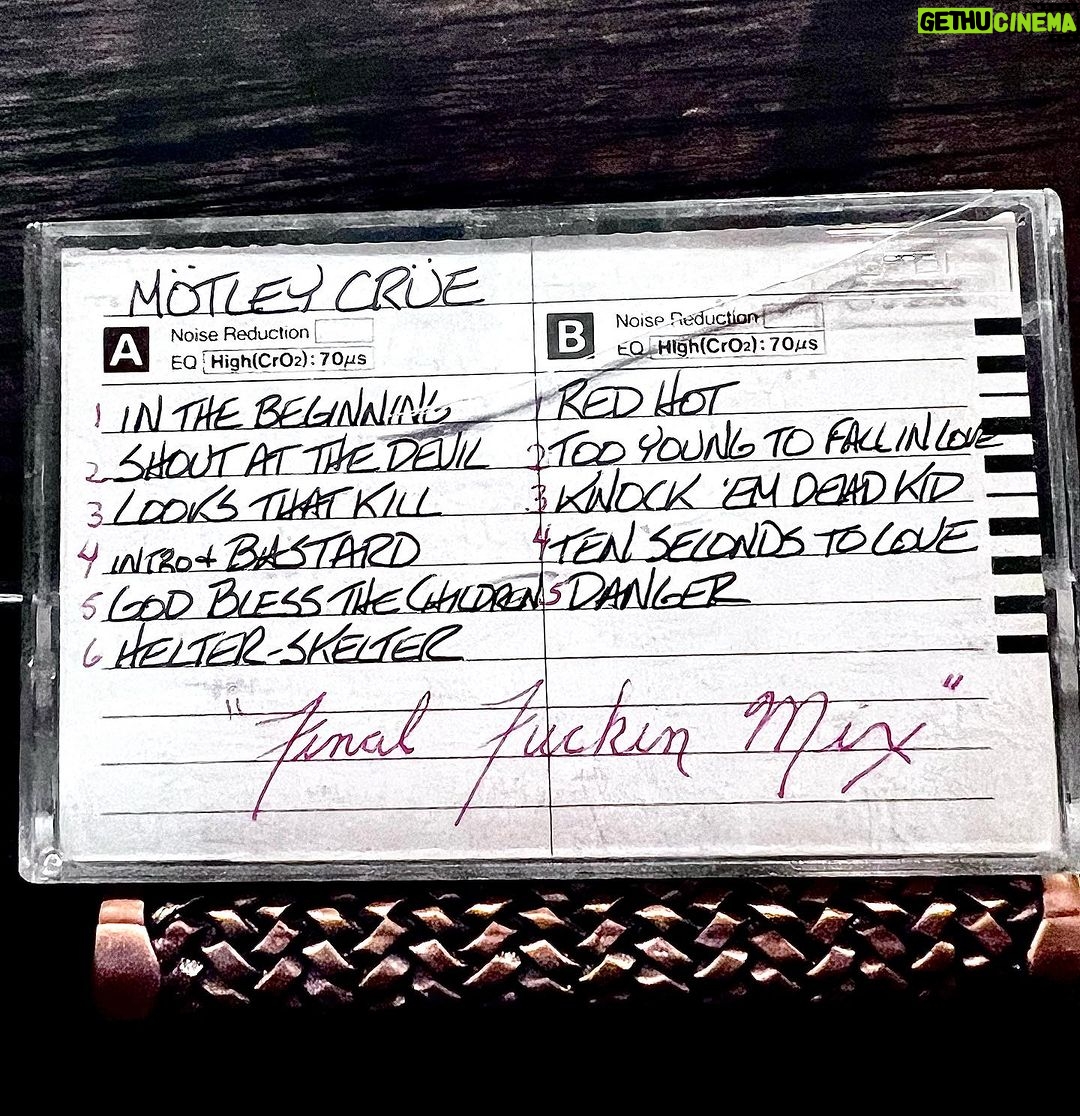 GETHUCINEMA
MÖTLEY CRÜE
A Noise Reduction
EQ High(CrO2): 70µs
B Noise Reduction
EQ High(CrO2): 70µs
1 IN THE BEGINNING
2 SHOUT AT THE DEVIL
3 LOOKS THAT KILL
4 INTRO + BASTARD
5 GOD BLESS THE CHILDREN
6 HELTER-SKELTER
1 RED HOT
2 TOO YOUNG TO FALL IN LOVE
3 KNOCK 'EM DEAD KID
4 TEN SECONDS TO LOVE
5 DANGER
"Final Fuckin Mix"